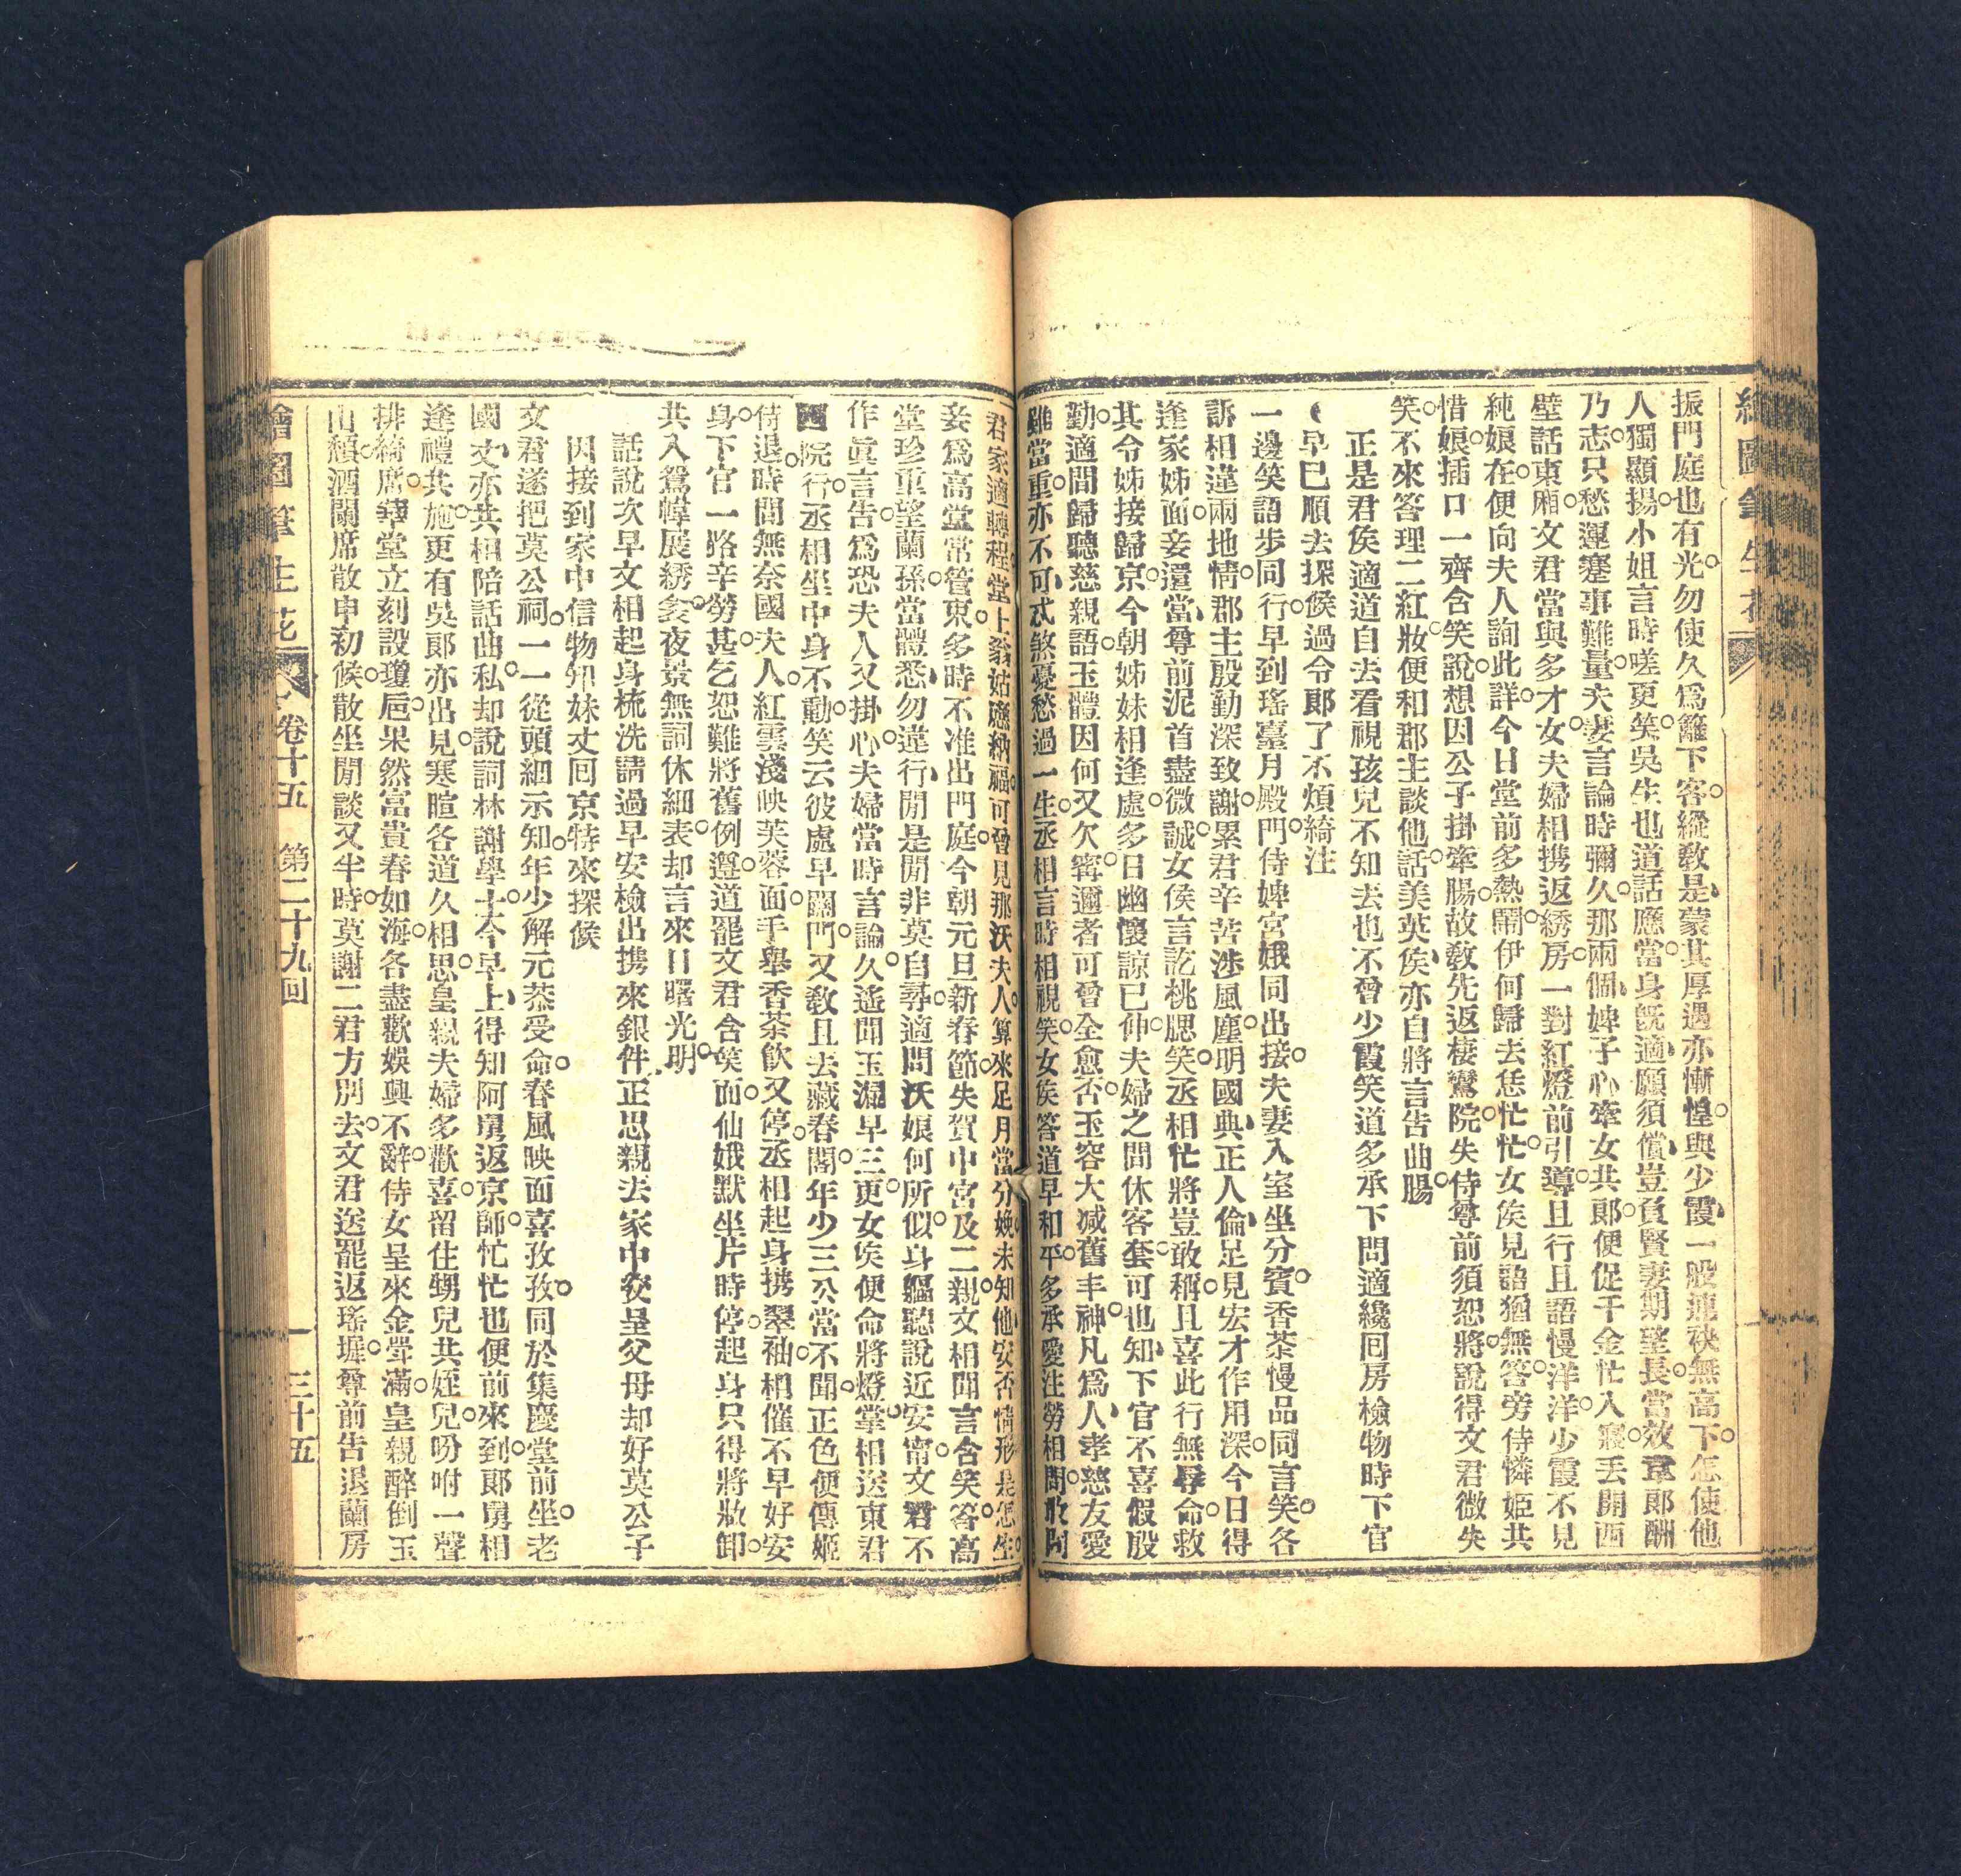 繪圖筆生花
振門庭也有光勿使久爲籬下客縱敎是蒙其厚遇亦慚惶與少霞一般連袂無高下怎使他
人獨顯揚小姐言時嗟更笑吳生也道話應當身旣適願須償豈負賢妻期望長當效韋郞酬
乃志只愁運蹇事難量夫妻言論時彌久那兩個婢子心牽女共郞便促千金忙入寢丟開西
壁話東廂文君當與多才女夫婦相携返綉房一對紅燈前引導且行且語慢洋洋少霞不見
純娘在便向夫人詢此詳今日堂前多熱鬧伊何歸去恁忙忙女侯見語猶無答旁侍憐姫共
惜娘插口一齊含笑說想因公子掛牽腸故敎先返棲鸞院失侍尊前須恕將說得文君微失
笑不來答理二紅妝便和郡主談他話美英侯亦自將言告曲腸
正是君侯適道自去看視孩兒不知去也不曾少霞笑道多承下問適纔回房檢物時下官
早已順去探候過令郞了不煩綺注
一邊笑語步同行早到瑤臺月殿門侍婢宮娥同出接夫妻入室坐分賓香茶慢品同言笑各
訴相違兩地情郡主殷勤深致謝累君辛苦涉風塵明國典正人倫足見宏才作用深今日得
逢家姊面妾還當尊前泥首盡微誠女侯言訖桃腮笑丞相忙將豈敢稱且喜此行無辱命救
其令姊接歸京今朝姊妹相逢處多日幽懷諒已伸夫婦之間休客套可也知下官不喜假殷
勤適間歸聽慈親語玉體因何又欠寗邇者可曾全愈否玉容大減舊丰神凡爲人孝慈友愛
雖當重亦不可忒煞憂愁過一生丞相言時相視笑女侯答道早和平多承愛注勞相問敢問
君家適轉程堂上翁姑應納福可曾見那沃夫人算來足月當分娩未知他安否情形是怎生
妾爲高堂常管束多時不准出門庭今朝元旦新春節失賀中宮及二親文相聞言含笑答高
堂珍重望蘭孫當體悉勿違行閒是閒非莫自尋適問沃娘何所似身軀聽說近安甯文君不
作眞言告爲恐夫人又掛心夫婦當時言論久遙聞玉漏早三更女侯便命將燈掌相送東君
西院行丞相坐中身不動笑云彼處早關門又敎且去藏春閣年少三公當不聞正色便傳姬
侍退時間無奈國夫人紅雲淺映芙蓉面手舉香茶飮又停丞相起身携翠袖相催不早好安
身下官一路辛勞甚乞恕難將舊例遵道罷文君含笑面仙娥默坐片時停起身只得將妝卸
共入鴛幃展綉衾夜景無詞休細表却言來日曙光明
話說次早文相起身梳洗請過早安檢出携來銀件正思親去家中交呈父母却好莫公子
因接到家中信物知妹丈回京特來探候
文君遂把莫公祠一一從頭細示知年少解元恭受命春風映面喜孜孜同於集慶堂前坐老
國丈亦共相陪話曲私却說詞林謝學士今早上得知阿舅返京師忙忙也便前來到郞舅相
逢禮共施更有吳郞亦出見寒暄各道久相思皇親夫婦多歡喜留住甥兒共姪兒吩咐一聲
排綺席華堂立刻設瓊卮果然富貴春如海各盡歡娛興不辭侍女呈來金斝滿皇親醉倒玉
山頹酒闌席散申初候散坐閒談又半時莫謝二君方別去文君送罷返瑤墀尊前告退蘭房
繪圖筆生花 卷十五 第二十九回 三十五